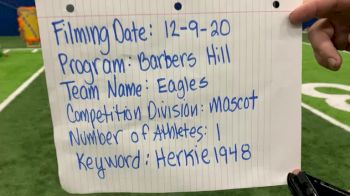 Filming Date: 12-9-20
Program: Barbers Hill
Team Name: Eagles
Competition Division: Mascot
Number of Athletes: 1
Keyword: Herkie1948